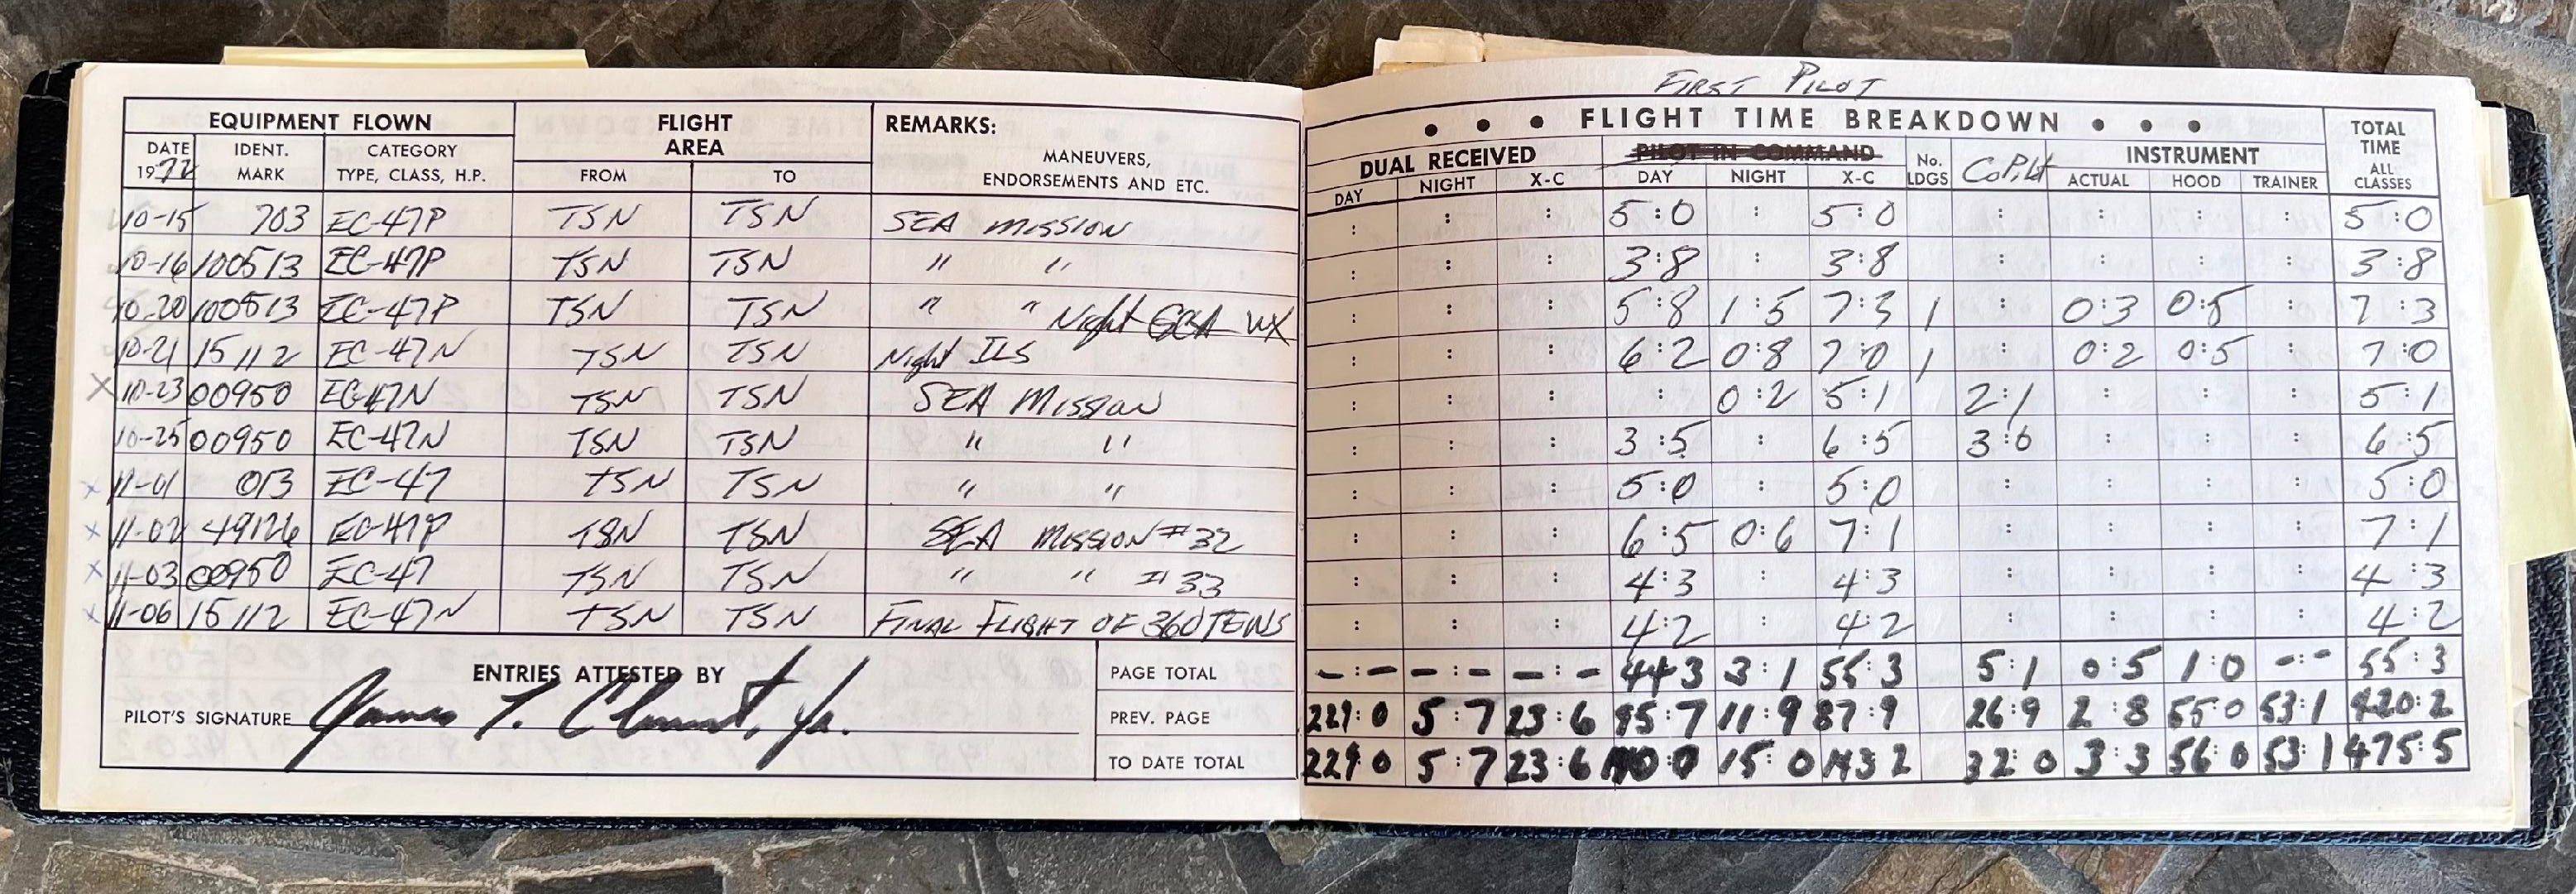 FIRST PILOT
EQUIPMENT FLOWN FLIGHT AREA REMARKS: • • • FLIGHT TIME BREAKDOWN • • • TOTAL TIME ALL CLASSES
DATE 1972 IDENT. MARK CATEGORY TYPE, CLASS, H.P. FROM TO MANEUVERS, ENDORSEMENTS AND ETC. DUAL RECEIVED PILOT IN COMMAND No. LDGS CoPilot INSTRUMENT
DAY NIGHT X-C DAY NIGHT X-C ACTUAL HOOD TRAINER
10-15 703 EC-47P TSN TSN SEA MISSION 5:0 5:0 5:0
10-16 100513 EC-47P TSN TSN " " 3:8 3:8 3:8
10-20 100513 EC-47P TSN TSN " " Night GCA WX 5:8 1:5 7:3 1 0:3 0:5 7:3
10-21 15112 EC-47N TSN TSN Night ILS 6:2 0:8 7:0 1 0:2 0:5 7:0
X 10-23 00950 EC-47N TSN TSN SEA Mission 0:2 5:1 2:1 5:1
10-25 00950 EC-47N TSN TSN " " 3:5 6:5 3:0 6:5
x 11-01 013 EC-47 TSN TSN " " 5:0 5:0 5:0
x 11-02 49126 EC-47P TSN TSN SEA MISSION #32 6:5 0:6 7:1 7:1
x 11-03 00950 EC-47 TSN TSN " " #33 4:3 4:3 4:3
x 11-06 15112 EC-47N TSN TSN FINAL FLIGHT OF 360 TEWS 4:2 4:2 4:2
ENTRIES ATTESTED BY PAGE TOTAL -:- -:- -:- 44:3 3:1 55:3 5:1 0:5 1:0 -:- 55:3
PILOT'S SIGNATURE James T. Clement, Jr. PREV. PAGE 229:0 5:7 23:6 95:7 11:9 87:9 26:9 2:8 55:0 53:1 420:2
TO DATE TOTAL 229:0 5:7 23:6 140:0 15:0 143:2 32:0 3:3 56:0 53:1 475:5